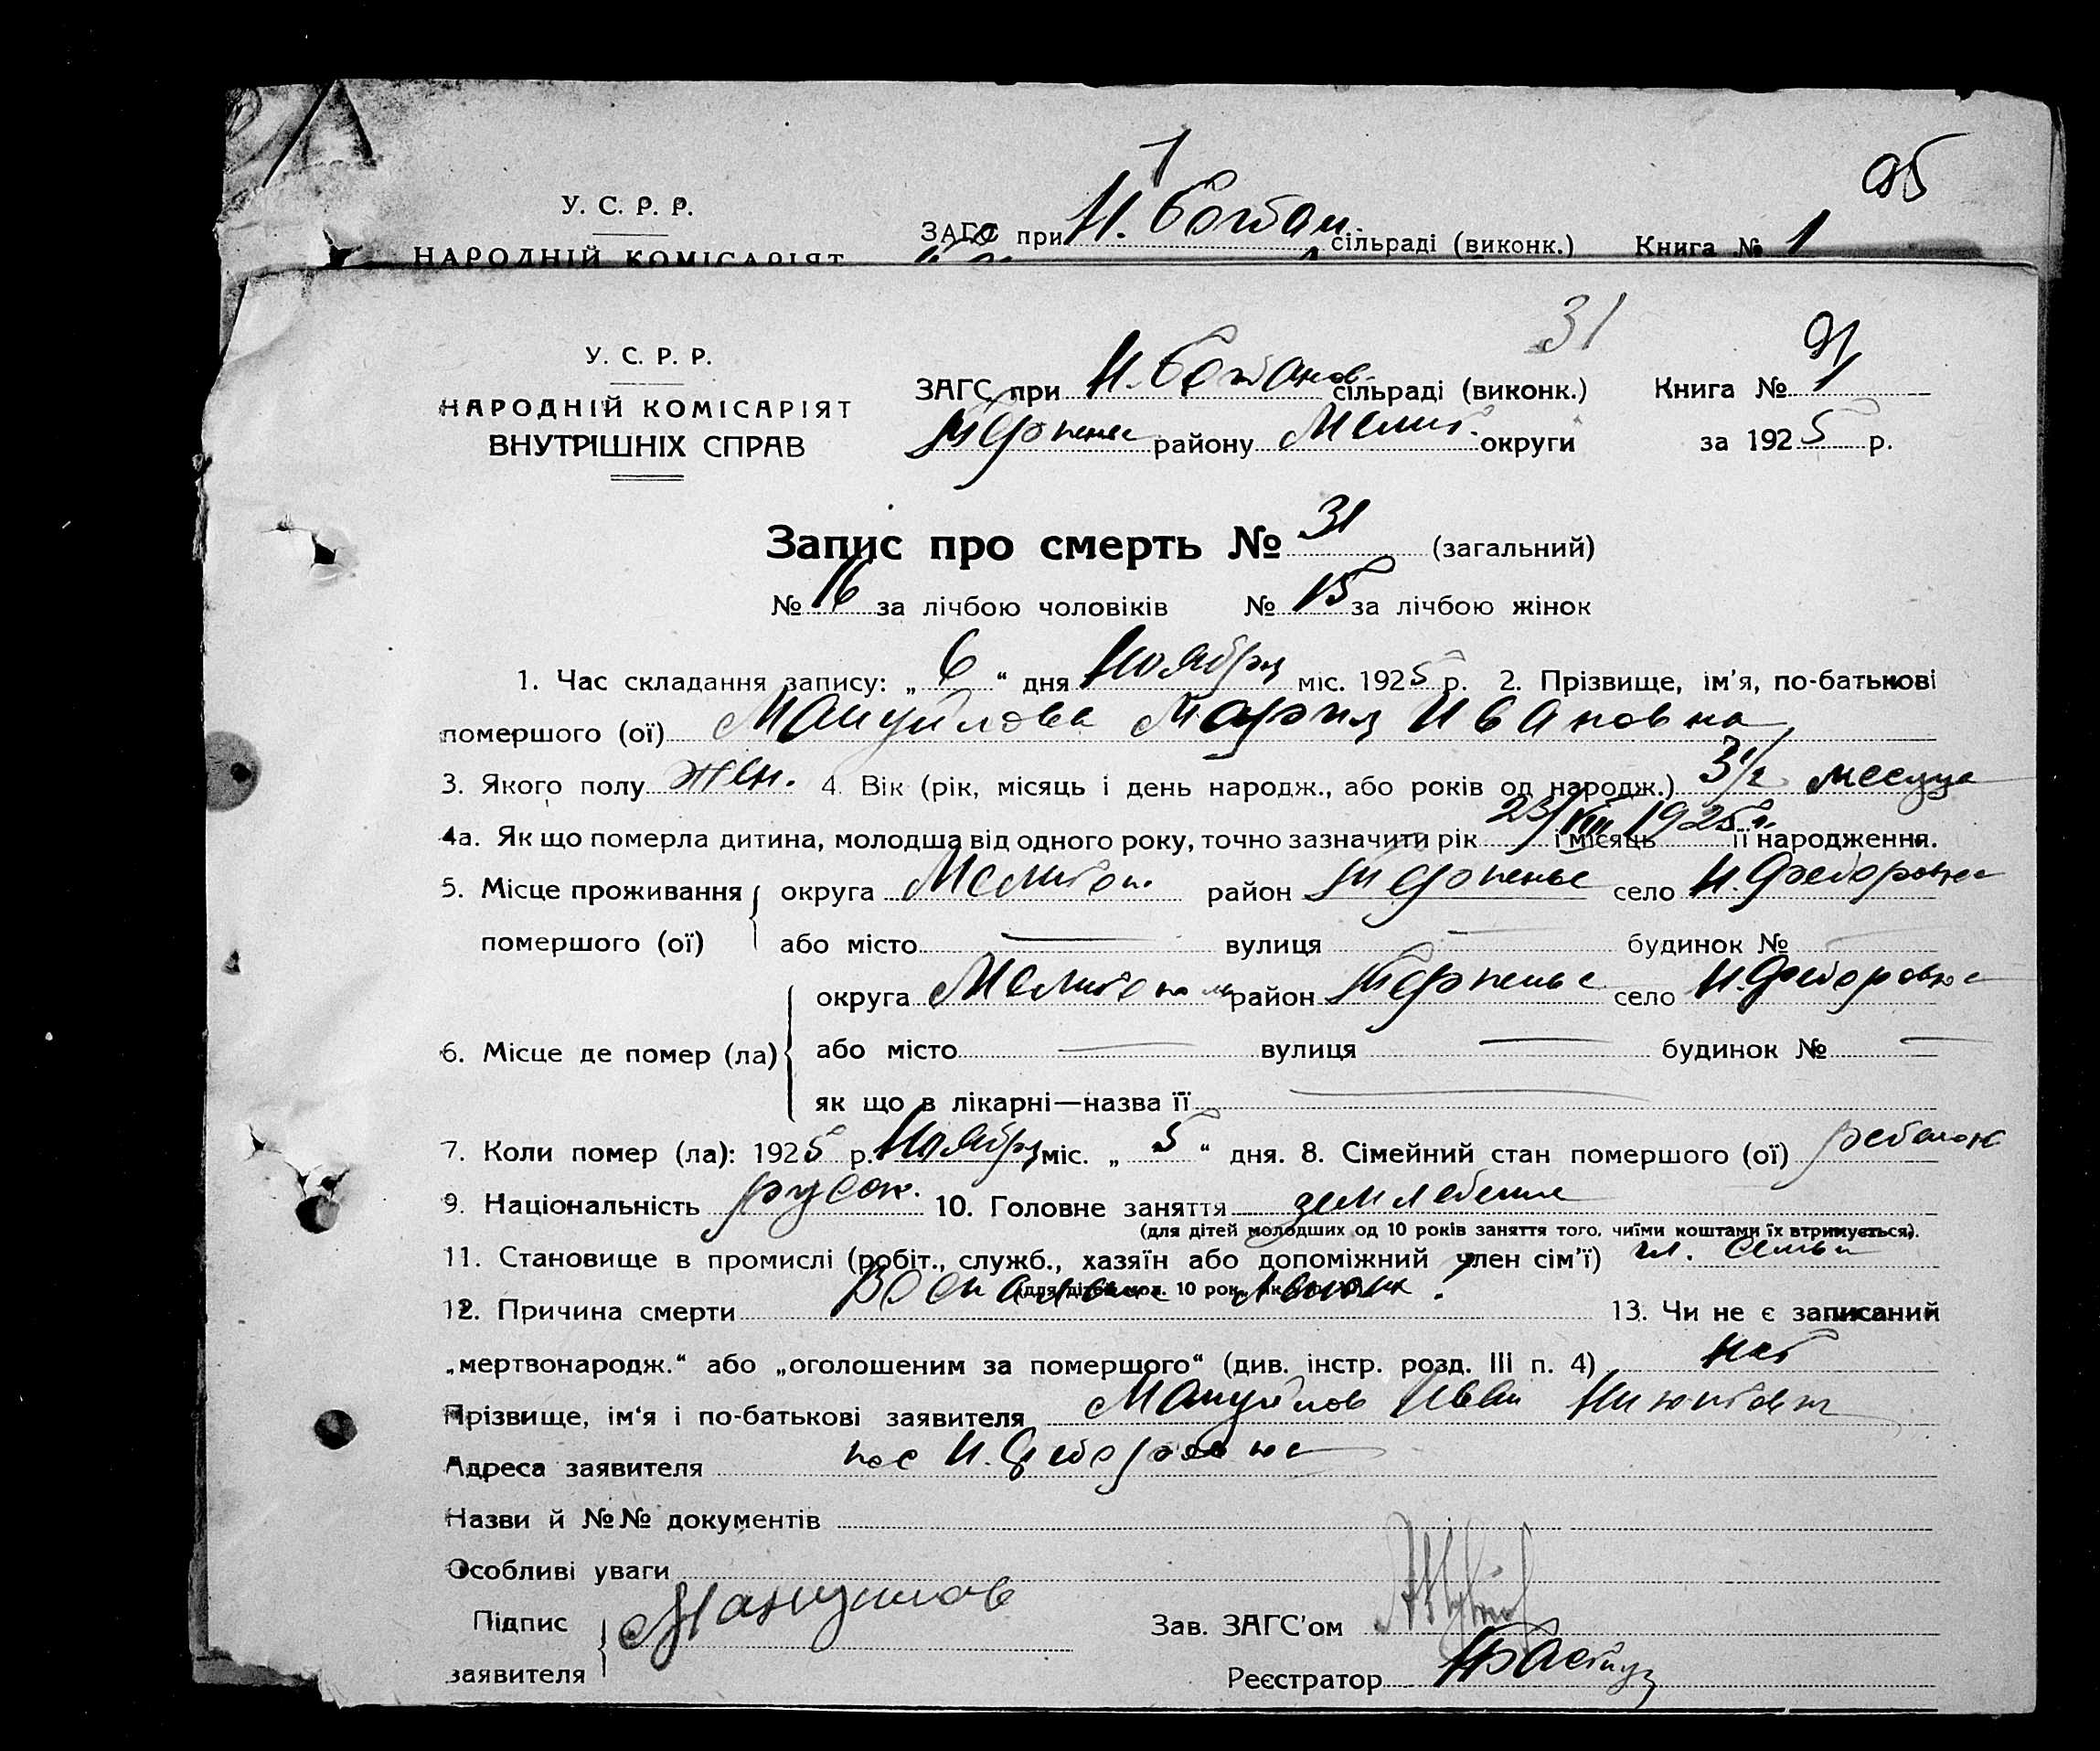 1
95
У. С. Р. Р.
ЗАГС при Н. Богдан. сільраді (виконк.) Книга № 1
НАРОДНІЙ КОМІСАРІЯТ
31
91
У. С. Р. Р.
ЗАГС при Н. Богданов. сільраді (виконк.) Книга № 1
НАРОДНІЙ КОМІСАРІЯТ
ВНУТРІШНІХ СПРАВ
району Мелит. округи за 1925 р.
Запис про смерть № 31 (загальний)
№ 16 за лічбою чоловіків № 15 за лічбою жінок
1. Час складання запису: „6“ дня Ноября міс. 1925 р. 2. Прізвище, ім'я, по-батькові
помершого (ої) Мануйлова Мария Ивановна
3. Якого полу жен. 4. Вік (рік, місяць і день народж., або років од народж.) 3 1/2 месяца
4а. Як що померла дитина, молодша від одного року, точно зазначити рік 23/VII 1925 г. і місяць її народження.
5. Місце проживання округа Мелитоп. район Терпенье село Н. Федоровка
помершого (ої) або місто — вулиця — будинок № —
округа Мелитопол район Терпенье село Н. Федоровка
6. Місце де помер (ла) або місто — вулиця — будинок № —
як що в лікарні—назва її —
7. Коли помер (ла): 1925 р. Ноября міс. „5“ дня. 8. Сімейний стан помершого (ої) ребенок
9. Національність русск. 10. Головне заняття земледелие
(для дітей молодших од 10 років заняття того, чиїми коштами їх втримується).
11. Становище в промислі (робіт., служб., хазяїн або допоміжний член сім'ї) чл. семьи
(для дітей мол. 10 рок.
12. Причина смерти Воспаление легких. 13. Чи не є записаний
„мертвонародж.“ або „оголошеним за померщого“ (див. інстр. розд. III п. 4) нет
Прізвище, ім'я і по-батькові заявителя Мануйлов Иван Никитович
Адреса заявителя пос Н. Федоровка
Назви й №№ документів
Особливі уваги
Підпис
заявителя Мануйлов
Зав. ЗАГС'ом
Реєстратор